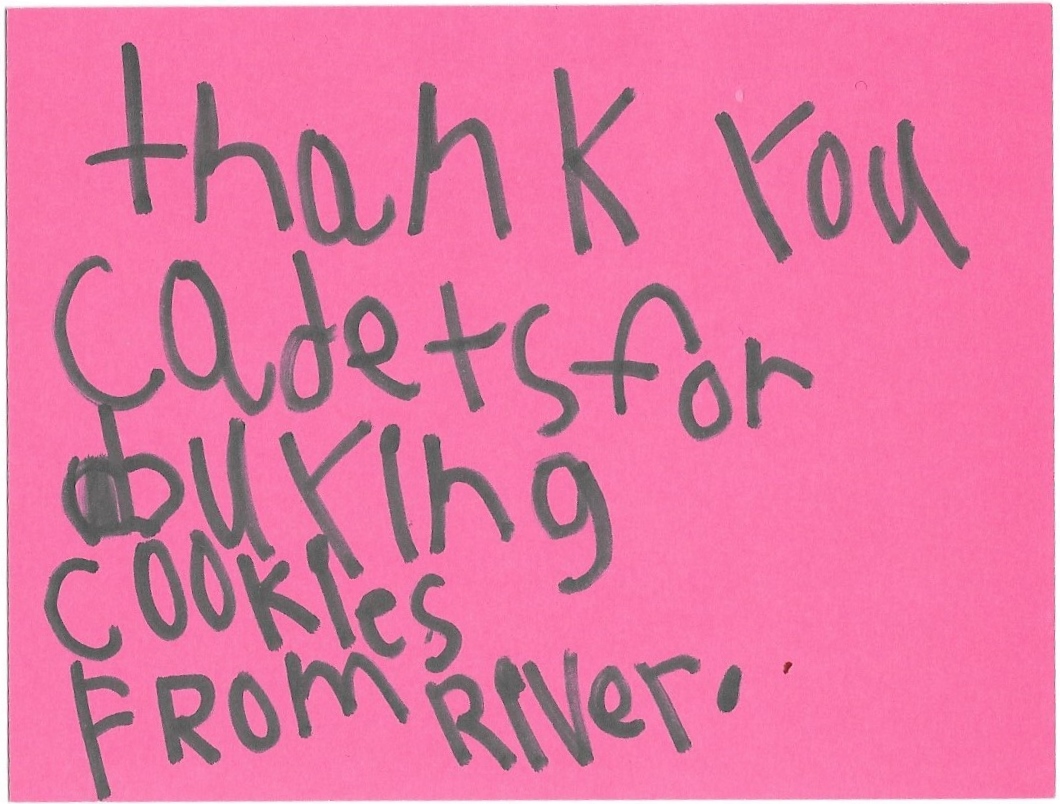 thank you
cadets for
buying
cookies
FROM RIVer.